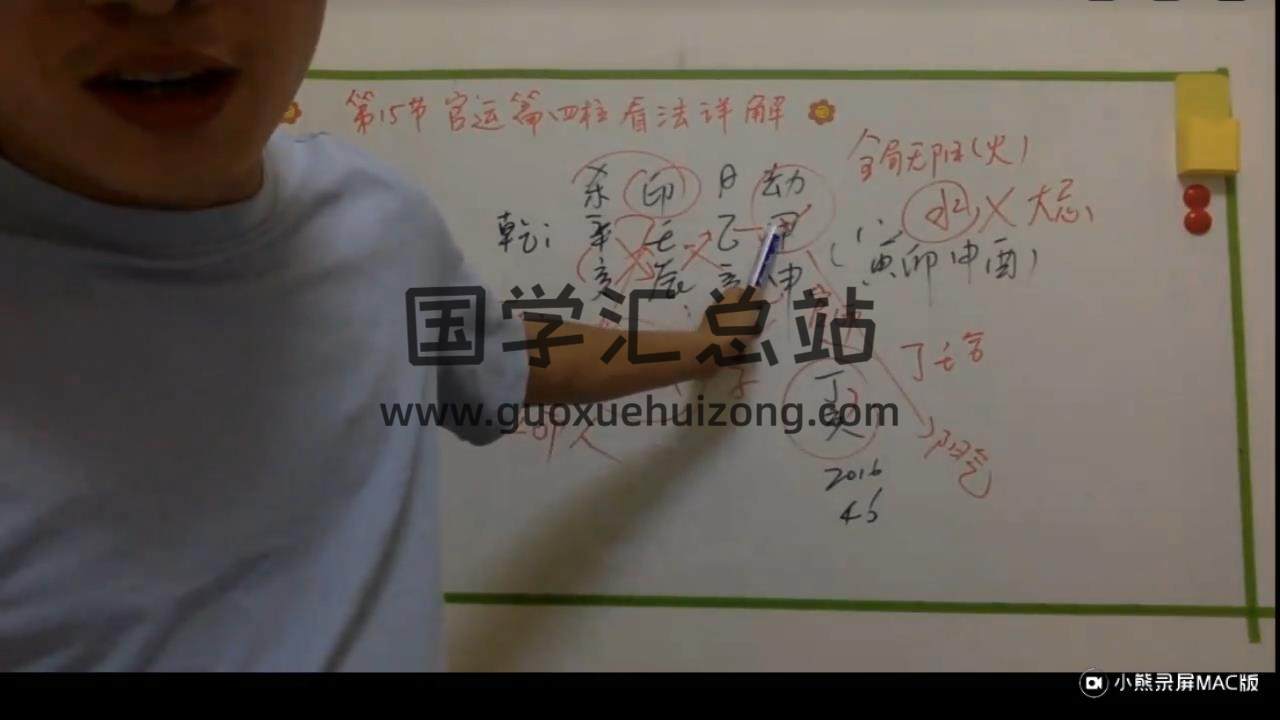 第15节 官运篇四柱看法详解
全局无阳(火)
杀 印 日 劫
水 X 大忌
乾: 辛 壬 乙 甲
(寅卯申酉)
亥 辰 亥 申
国学汇总站
丁壬合
www.guoxuehuizong.com
丁
阳气
2016
45
小熊录屏MAC版